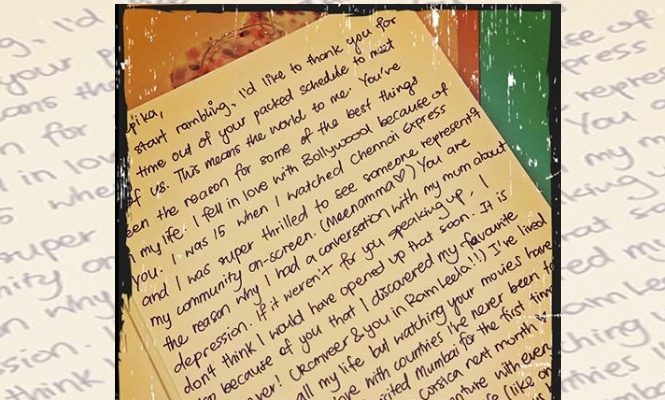 start rambling, I'd like to thank you for
time out of your packed schedule to meet
of us. This means the world to me. You've
been the reason for some of the best things
in my life. I fell in love with Bollywood because of
you. I was 15 when I watched Chennai Express
and I was super thrilled to see someone representing
my community on-screen. (Meenamma ♡) You are
the reason why I had a conversation with my mum about
depression. If it weren't for you speaking up, I
don't think I would have opened up that soon. It is
also because of you that I discovered my favourite
ever! (Ranveer & you in Ram Leela!!) I've lived
all my life but watching your movies have
love with countries I've never been to
visited Mumbai for the first time
Corsica next month
with every
(like on